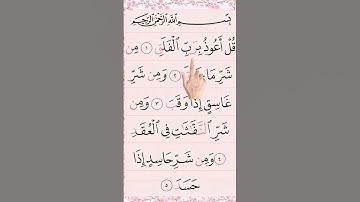 بِسْمِ اللَّهِ الرَّحْمَٰنِ الرَّحِيمِ
قُلْ أَعُوذُ بِرَبِّ الْفَلَقِ ١ مِن
شَرِّ مَا ٢ وَمِن شَرِّ
غَاسِقٍ إِذَا وَقَبَ ٣ وَمِن
شَرِّ النَّفَّٰثَٰتِ فِي الْعُقَدِ
٤ وَمِن شَرِّ حَاسِدٍ إِذَا
حَسَدَ ٥